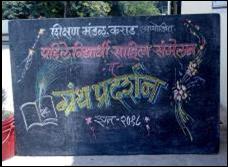 शिक्षण मंडळ, कराड आयोजित
पहिले विद्यार्थी साहित्य संमेलन
व
ग्रंथ प्रदर्शन
सन-२०१८